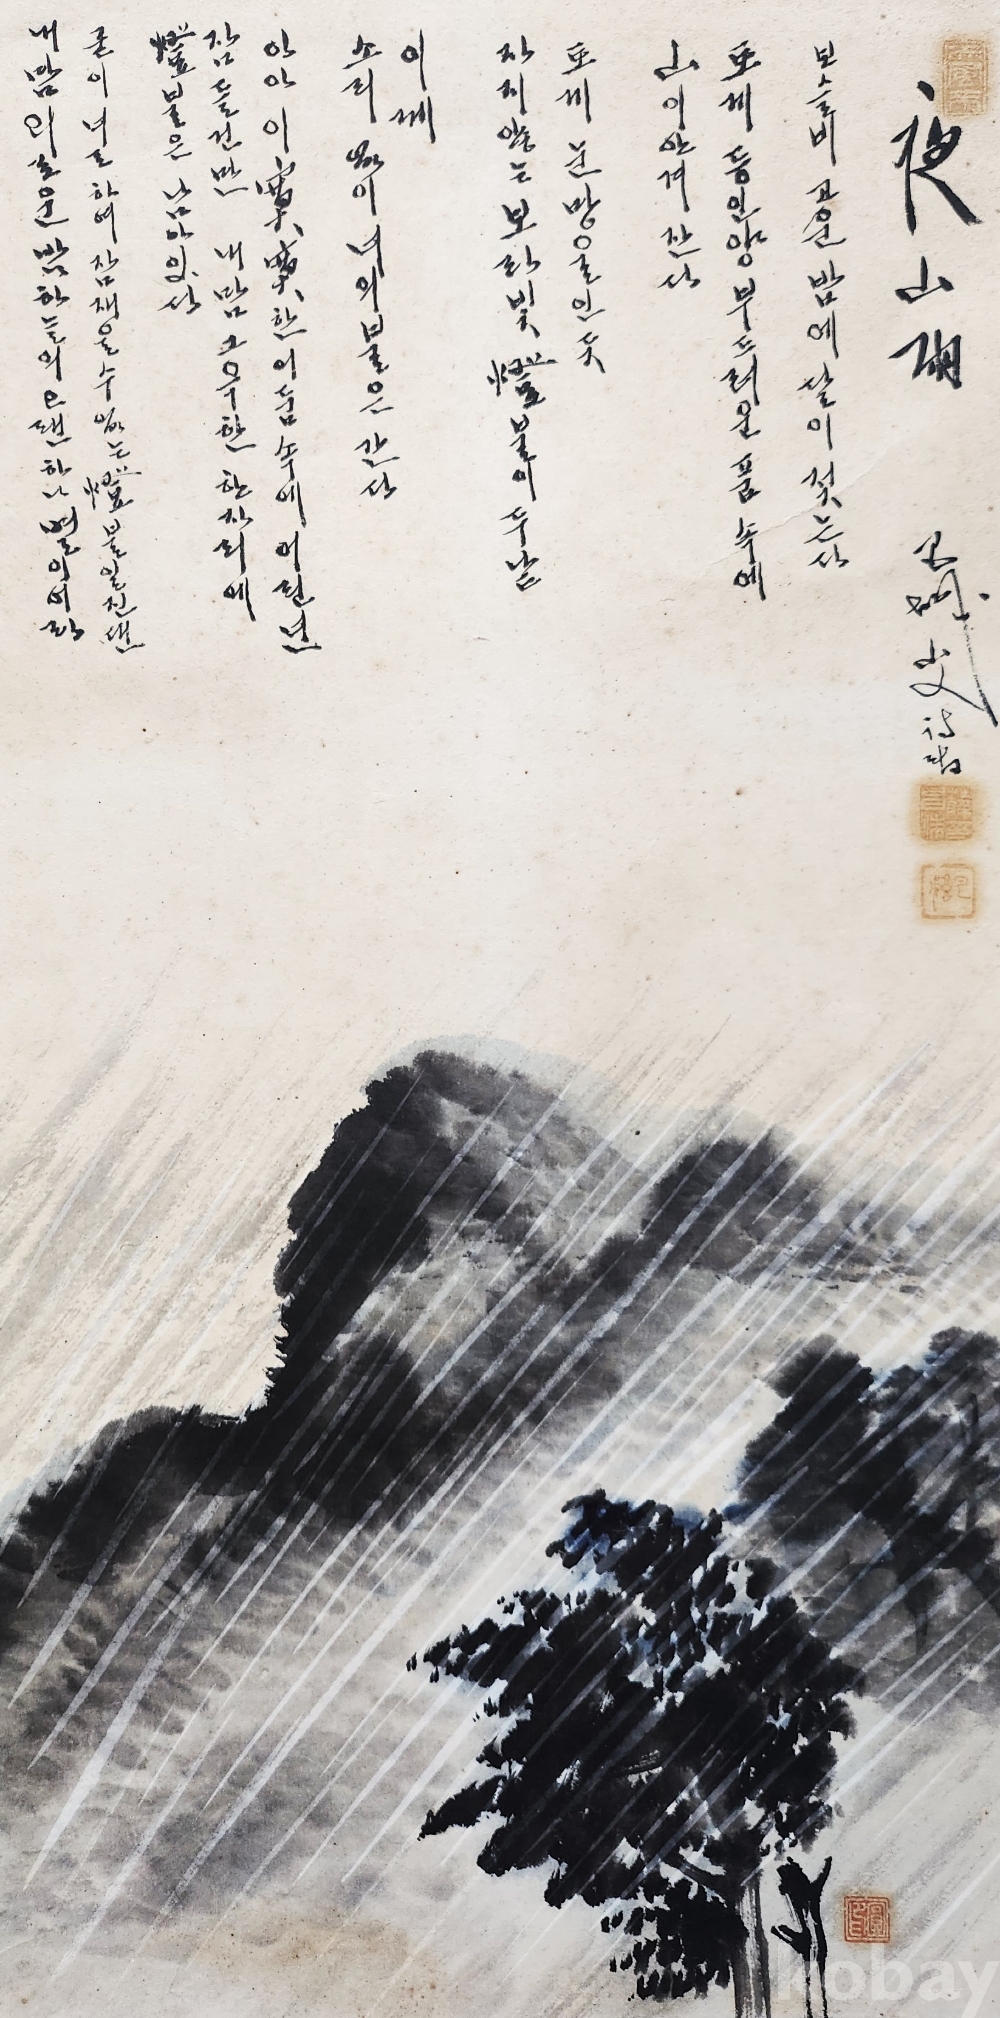 夜山雨
보슬비 고운 밤에 살이 젖는다
포게 등인양 부드러운 품 속에
山이 안겨 잔다
포게 눈망울인듯
자지 않는 보라빛 燈불이 두낱
이께
소리 없이 너의 불은 간다
이 寞寞한 어둠 속에 어린 넌
잠들건만 내 맘 그윽한 한 자리에
燈불은 남아있다
굳이 너로 하여 잠재울 수 없는 燈불일진댄
내 맘 외로운 밤하늘의 하나 별이어라
kobay